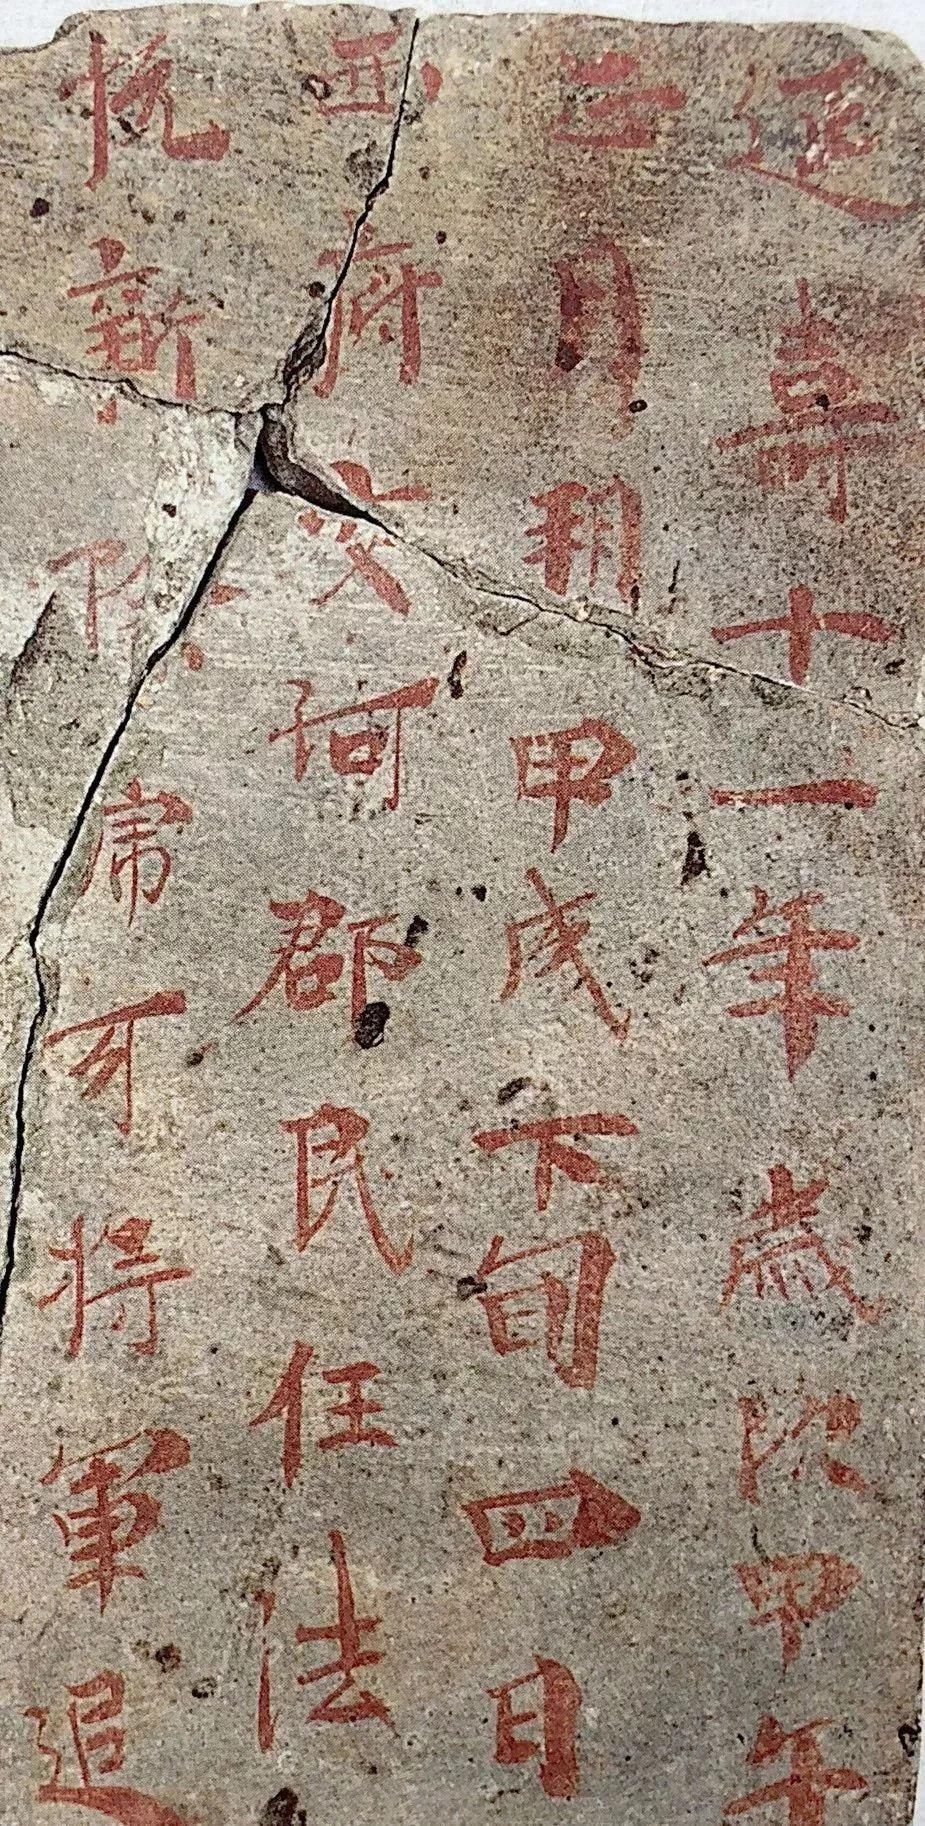 延壽十一年歲次甲午
正月朔甲戌下旬四日
西府交河郡民任法
悅新除虎牙將軍追